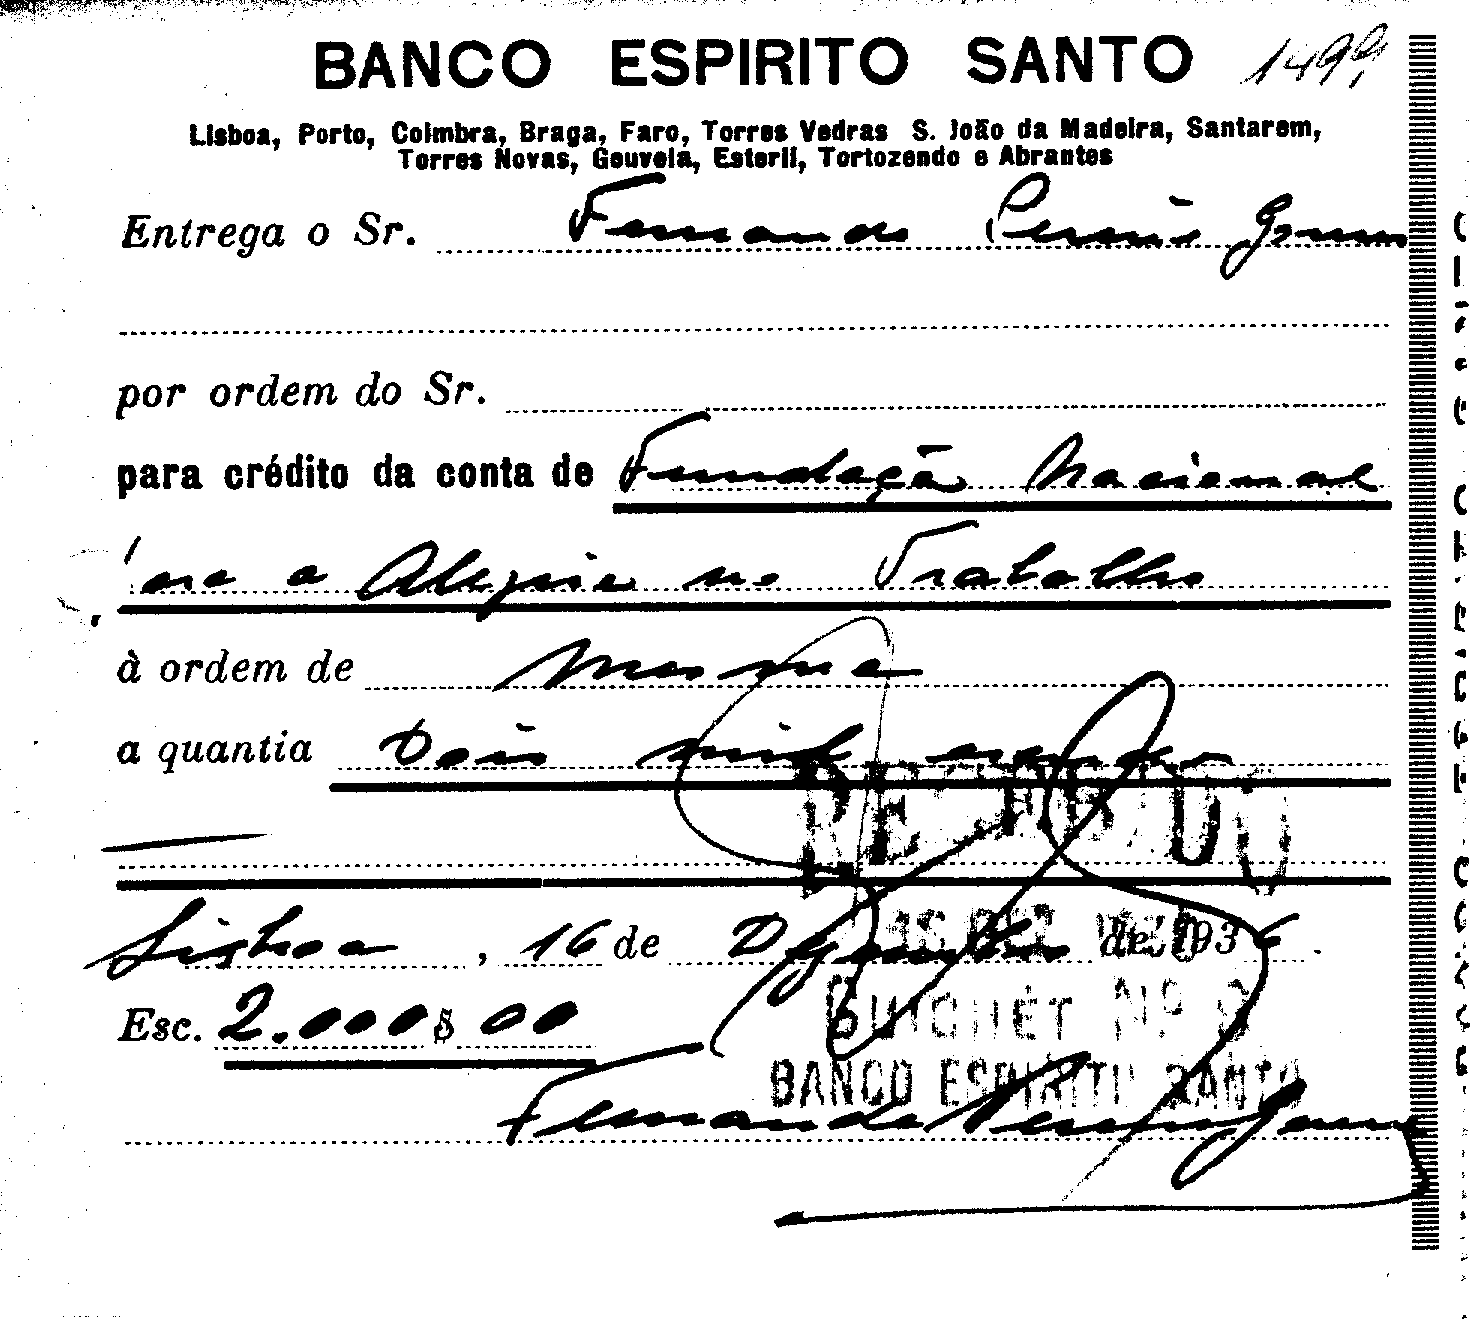 BANCO ESPIRITO SANTO 1499
Lisboa, Porto, Coimbra, Braga, Faro, Torres Vedras S. João da Madeira, Santarem,
Torres Novas, Gouveia, Estoril, Tortozendo e Abrantes
Entrega o Sr. Fernando
por ordem do Sr.
para crédito da conta de Fundação Nacional
para a Alegria no Trabalho
à ordem de mesma
a quantia Dois mil escudos
RECEBIDO
Lisboa, 16 de Dezembro de 1936.
16 DEZ
Esc. 2.000$00
GUICHET Nº
BANCO ESPIRITO SANTO
Fernando